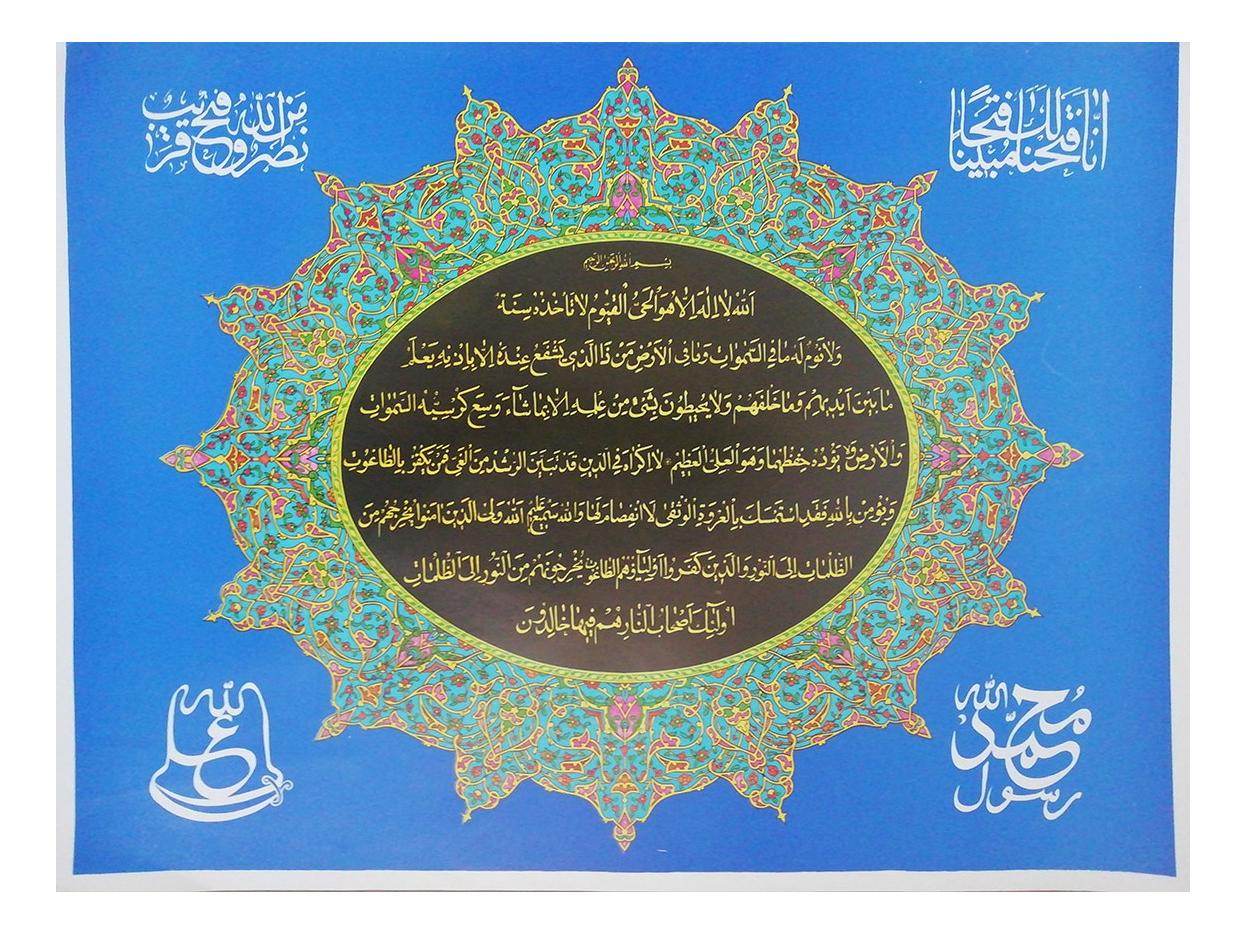 انا فتحنا لك فتحاً مبيناً
نصر من الله وفتح قريب
بسم الله الرحمن الرحیم
الله لا اله الا هو الحی القیوم لا تاخذه سنة
ولا نوم له ما فی السموات وما فی الارض من ذا الذی یشفع عنده الا باذنه یعلم
ما بین ایدیهم وما خلفهم ولا یحیطون بشیء من علمه الا بما شاء وسع کرسیه السموات
والارض ولا یؤده حفظهما وهو العلی العظیم لا اکراه فی الدین قد تبین الرشد من الغی فمن یکفر بالطاغوت
ویؤمن بالله فقد استمسک بالعروة الوثقی لا انفصام لها والله سمیع علیم الله ولی الذین امنوا یخرجهم من
الظلمات الی النور والذین کفروا اولیاؤهم الطاغوت یخرجونهم من النور الی الظلمات
اولئک اصحاب النار هم فیها خالدون
محمد رسول الله
علی الله